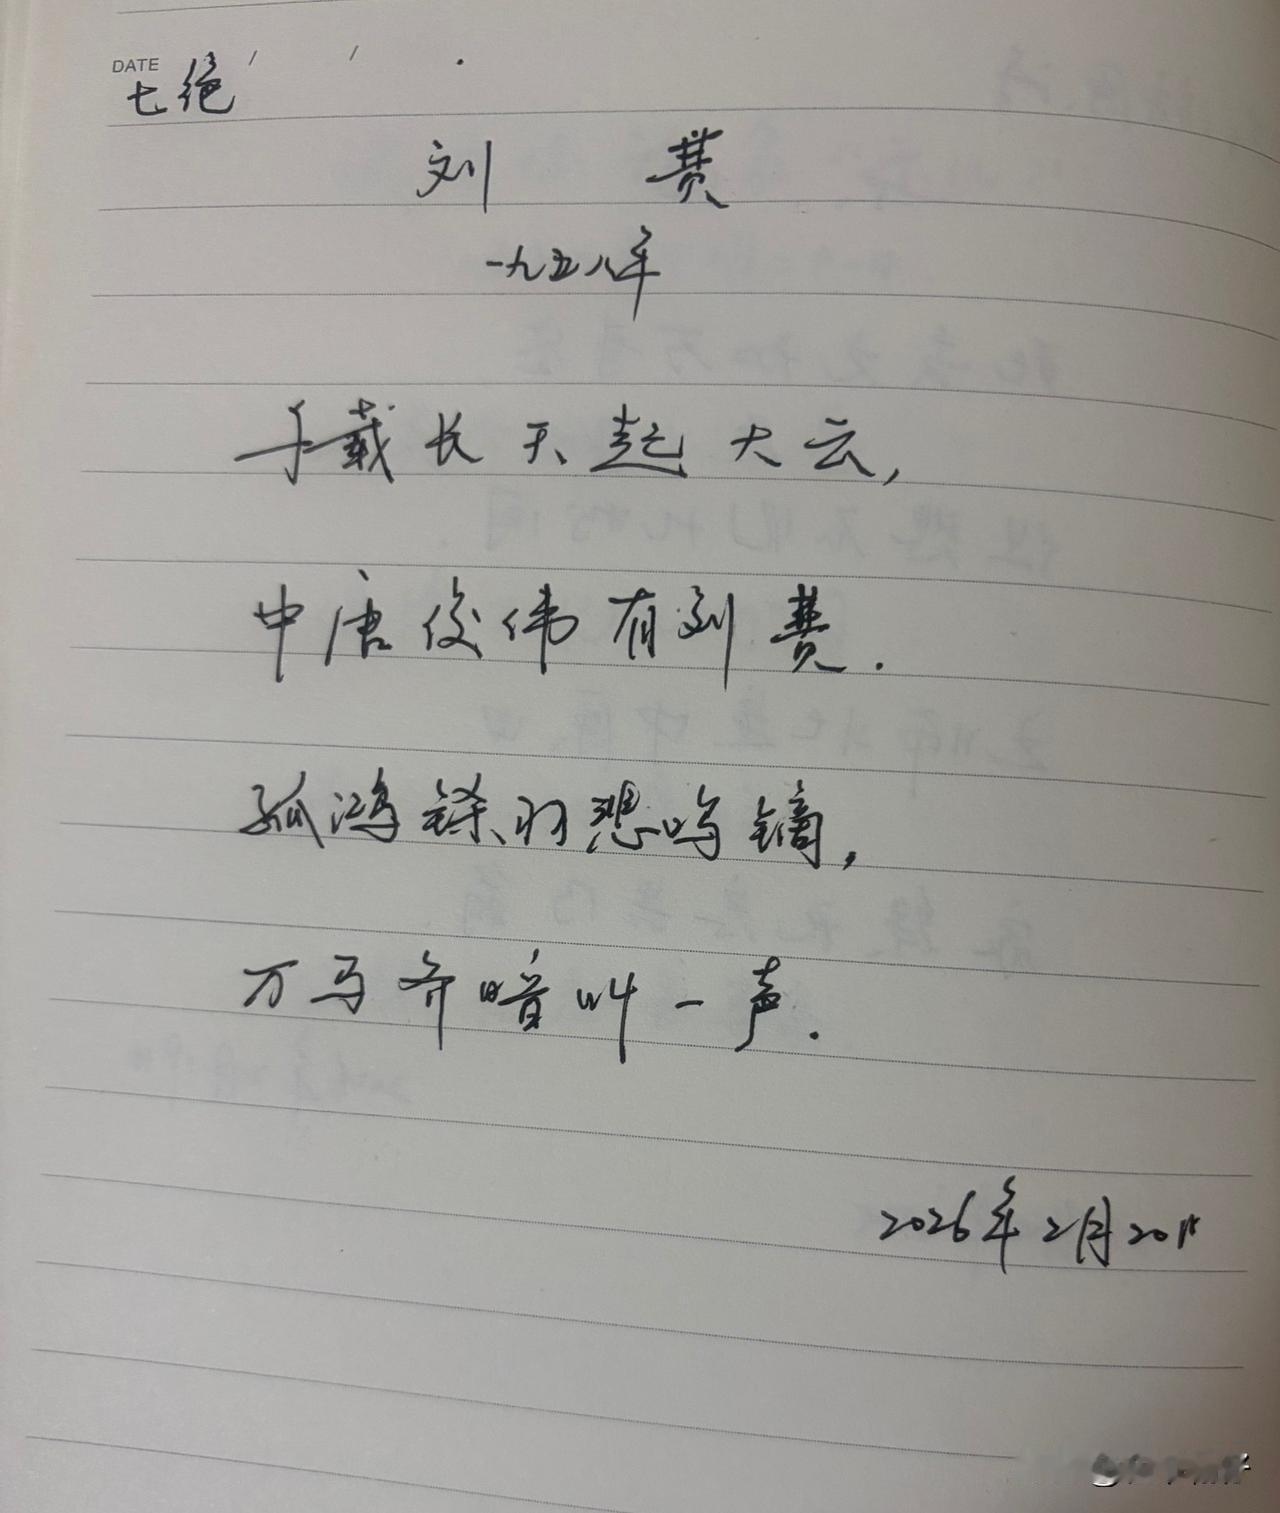 DATE / / .
七绝
刘 蕡
一九五八年
千载长天起大云,
中唐俊伟有刘蕡.
孤鸿铩羽悲鸣镝,
万马齐喑叫一声.
2026年2月20日